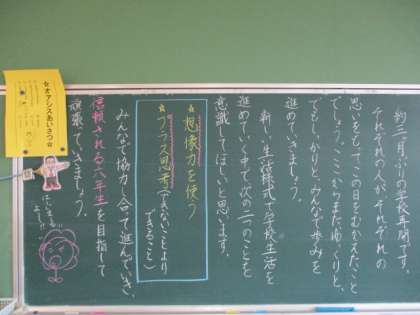 約三ヶ月ぶりの学校再開です。
それぞれの人が、それぞれの
思いをもって、この日をむかえたこと
でしょう。ここからまたゆっくりと、
でもしっかりと、みんなで歩みを
進めていきましょう。
新しい生活様式で学校生活を
進めていく中で、次の二つのことを
意識してほしいと思います。
☆想像力を使う
☆プラス思考(できないことより
できること)
みんなで協力し合って進んでいき、
信頼される六年生を目指して
頑張っていきましょう。
☆オアシスあいさつ☆